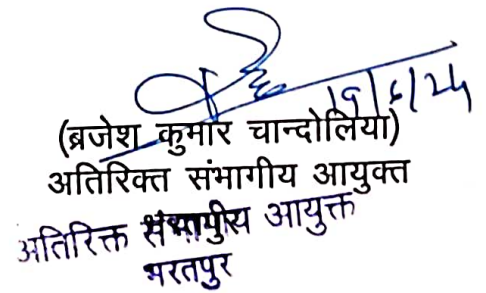 19/6/24
(ब्रजेश कुमार चान्दोलिया)
अतिरिक्त संभागीय आयुक्त
अतिरिक्त संभागीय आयुक्त
भरतपुर